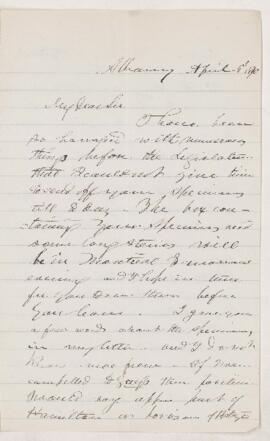 Albany April 8th
My Dear Sir
I have been
so harassed with numerous
things before the Legislature
that I could not give time
to send off your specimens
till to day. The box con-
taining your specimens and
some long stems will
be in Montreal tomorrow
evening and I hope in time
for you to see them before
you leave. I gave you
a few words about the specimens
in my letter and I do not
know more now. If now
compelled to them
I would say upper part of
Hamilton or